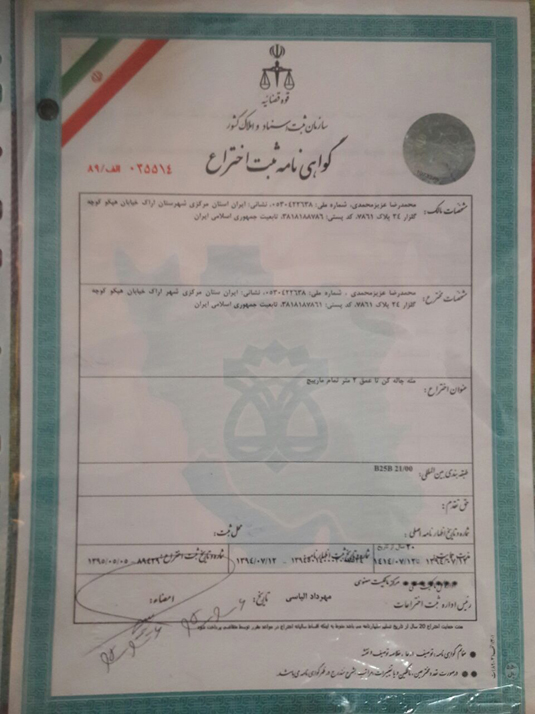 قوه قضائیه
سازمان ثبت اسناد و املاک کشور
گواهی نامه ثبت اختراع
۰۳۵۵۱۴ الف/۸۹
مشخصات مالک:
محمدرضا عزیزمحمدی، شماره ملی: ۰۵۳۰۴۲۲۶۳۸، نشانی: ایران استان مرکزی شهرستان اراک خیابان هپکو کوچه
گلزار ۲۴ پلاک ۷۸۶۱، کد پستی: ۳۸۱۸۱۸۸۷۸۶، تابعیت جمهوری اسلامی ایران
مشخصات مخترع:
محمدرضا عزیزمحمدی ، شماره ملی: ۰۵۳۰۴۲۲۶۳۸، نشانی: ایران ستان مرکزی شهر اراک خیابان هپکو کوچه
گلزار ۲۴ پلاک ۷۸۶۱، کد پستی: ۳۸۱۸۱۸۷۸۶۱، تابعیت جمهوری اسلامی ایران
عنوان اختراع:
مته چاله کن تا عمق ۲ متر تمام مارپیچ
طبقه بندی بین المللی:
B25B 21/00
حق تقدم:
شماره و تاریخ اظهارنامه اصلی:
محل ثبت:
۲۰ سال از تاریخ
۱۳۹۴/۰۷/۱۲
۱۴۱۴/۰۷/۱۲
۱۳۹۴/۰۷/۱۲
شماره و تاریخ ثبت اختراع:
۸۹۴۳۹ - ۱۳۹۵/۰۵/۰۵
مرکز مالکیت معنوی
رئیس اداره ثبت اختراعات
مهرداد الیاسی
تاریخ:
امضاء:
مدت حمایت اختراع 20 سال از تاریخ تسلیم اظهارنامه می باشد